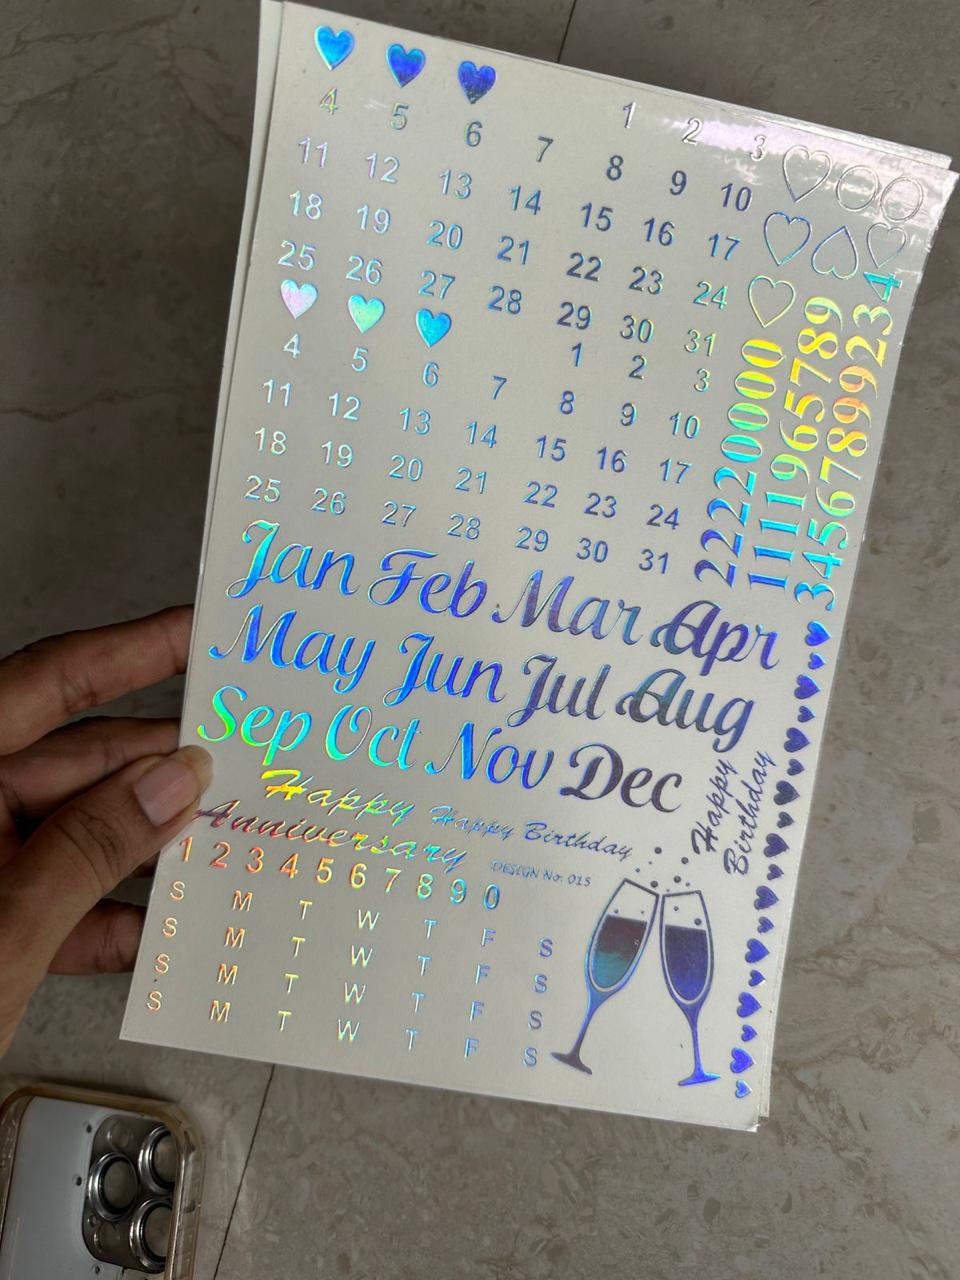 1 2 3
4 5 6 7 8 9 10
11 12 13 14 15 16 17
18 19 20 21 22 23 24
25 26 27 28 29 30 31
1 2 3
4 5 6 7 8 9 10
11 12 13 14 15 16 17
18 19 20 21 22 23 24
25 26 27 28 29 30 31
2220000
1111965789
34567899234
Jan Feb Mar Apr
May Jun Jul Aug
Sep Oct Nov Dec
Happy
Anniversary
Happy Birthday
Happy
Birthday
DESIGN No. 015
1 2 3 4 5 6 7 8 9 0
S M T W T F S
S M T W T F S
S M T W T F S
S M T W T F S